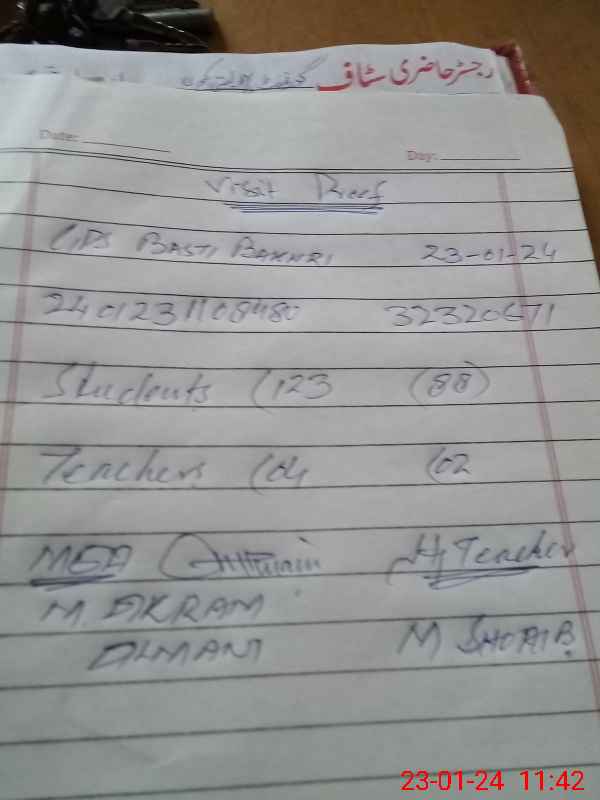 رجسٹر حاضری سٹاف
Date:
Day:
Visit Breef
GPS BASTI BAKHRI 23-01-24
2401231108480 32320671
Students (123 (88)
Teachers (04 (02
MEA H, Teacher
M. AKRAM
ALMANI M SHOAIB.
23-01-24 11:42